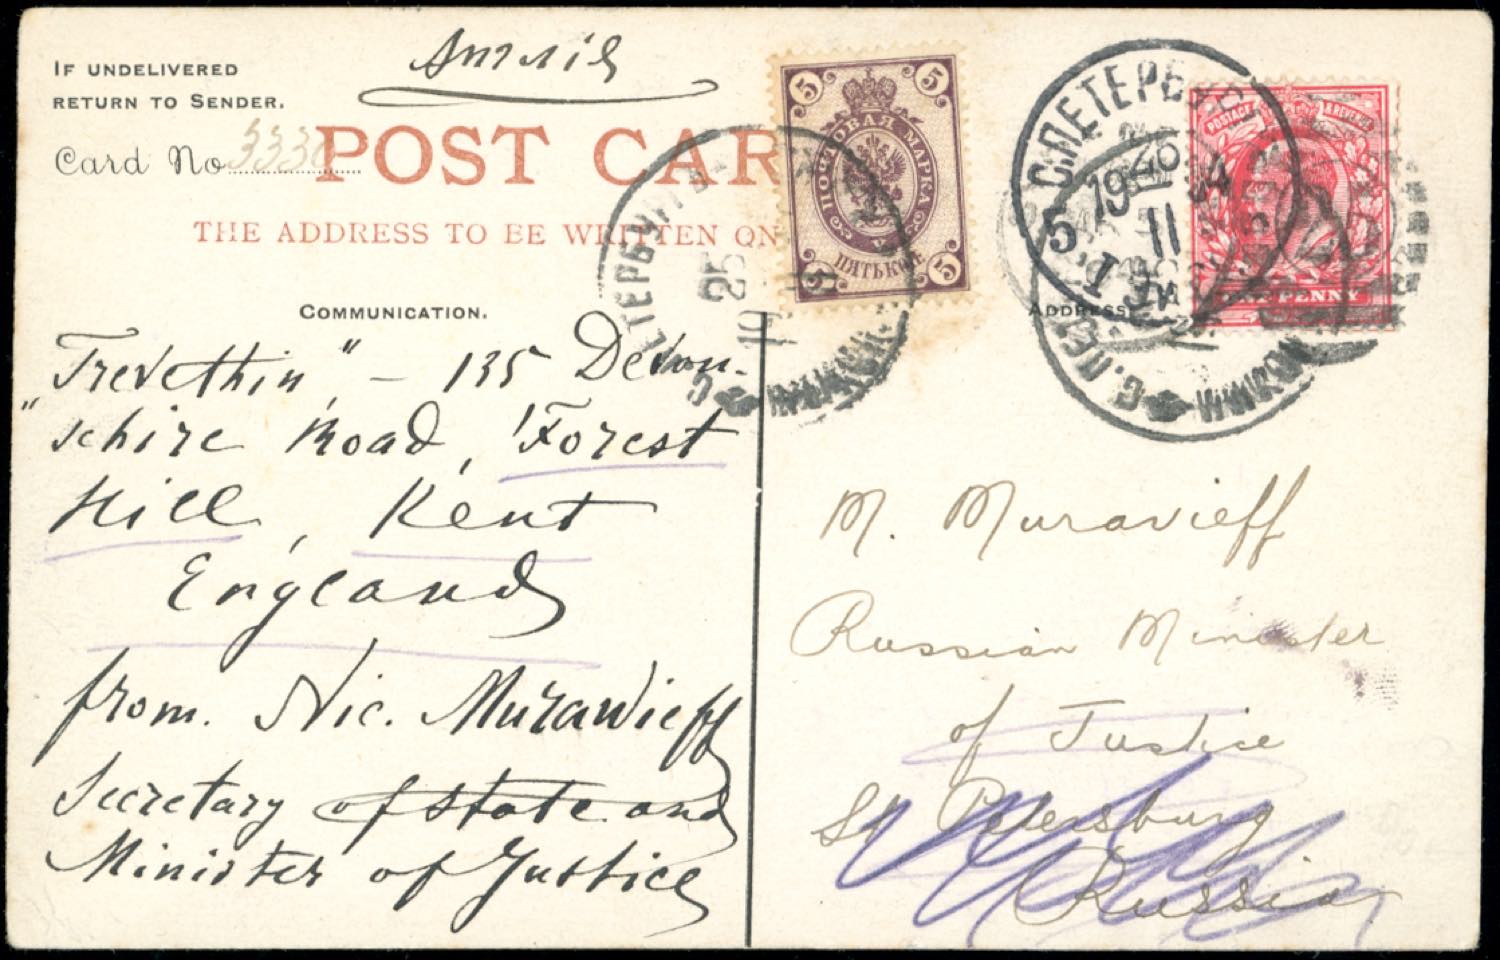 Англія
IF UNDELIVERED
RETURN TO SENDER.
Card No 333
POST CAR
THE ADDRESS TO BE WRITTEN ON
COMMUNICATION.
ADDRESS
5 5
ПОЧТОВАЯ МАРКА
ПЯТЬ КОП
5 5
POSTAGE & REVENUE
ONE PENNY
С.ПЕТЕРБ
5
11
1904
ЕТЕРБУРГ
25
С. ПЕ
"Trevethin" - 135 Devon-
schire Road, Forest
Hill, Kent
England
from. Nic. Murawieff
Secretary of state and
Minister of Justice
M. Muravieff
Russian Minister
of Justice
St Petersburg
Russia